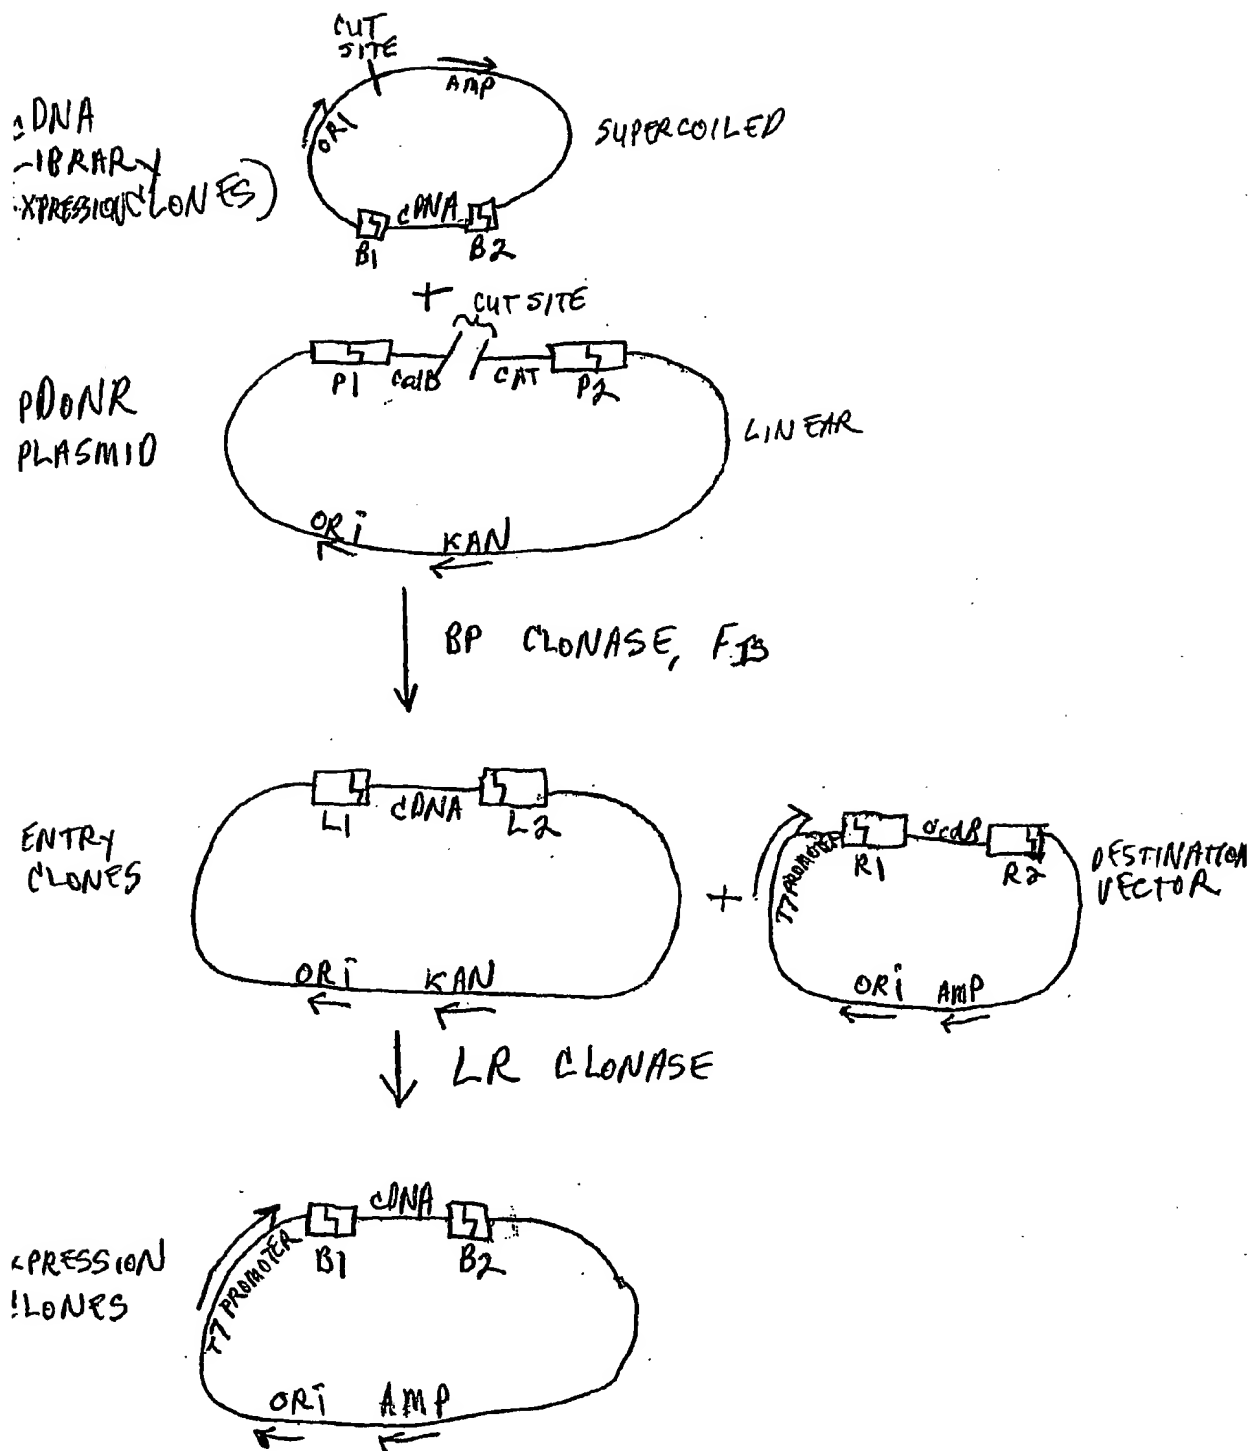 CUT
SITE
AMP
ORI
DNA
IBRARY
XPRESSION CLONES)
SUPERCOILED
cDNA
B1
B2
+
CUT SITE
P1
CAT
P2
pDONR
PLASMID
LINEAR
ORi
KAN
BP CLONASE, FIS
L1
cDNA
L2
ENTRY
CLONES
+
T7 PROMOTER
R1
ccdB
R2
DESTINATION
VECTOR
ORi
KAN
ORi
AMP
LR CLONASE
cDNA
B1
B2
T7 PROMOTER
PRESSION
LONES
ORi
AMP